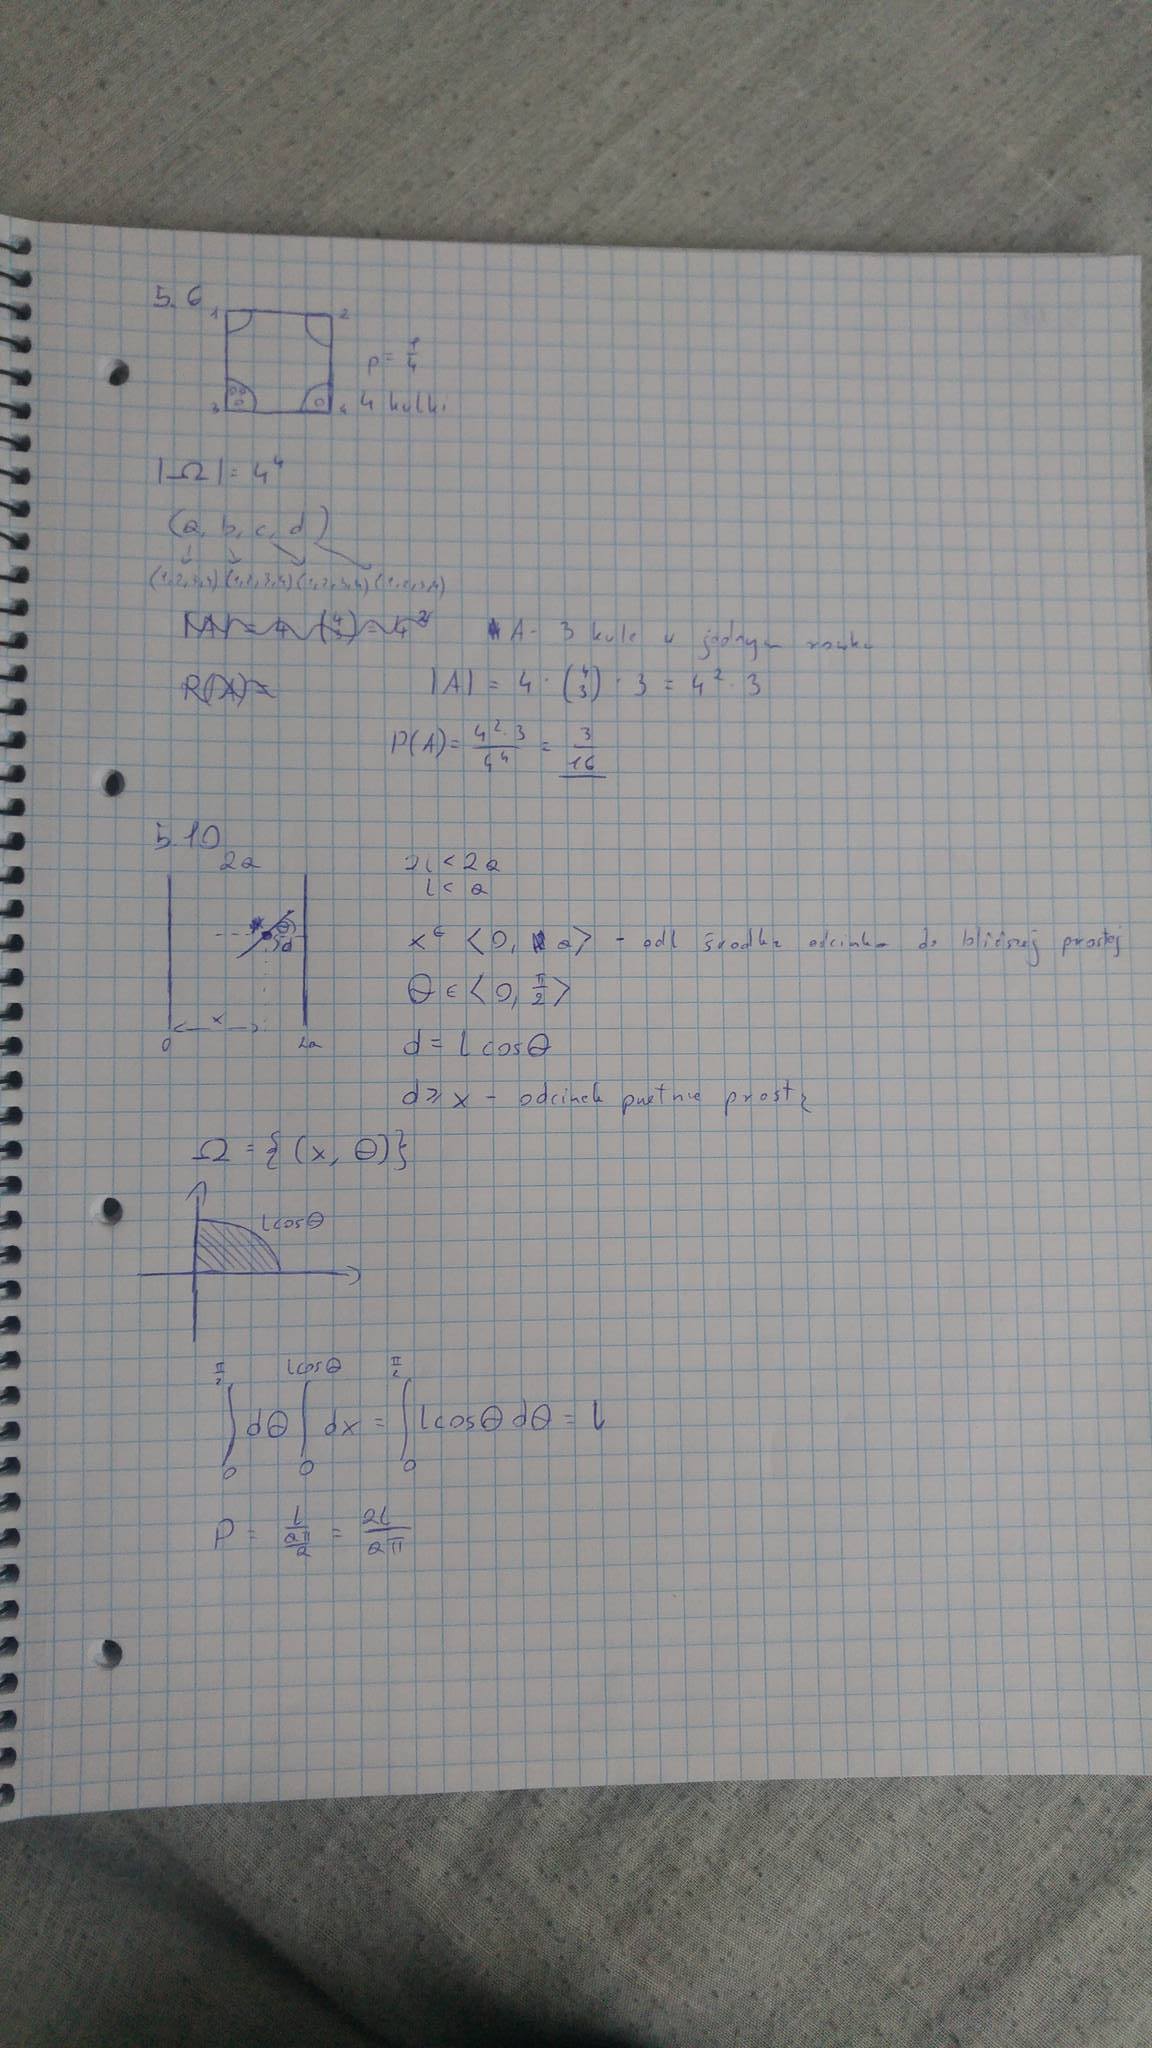 5.6
1 2
3 4
p = 1/4
4 kulki
|Ω| = 4^4
(a, b, c, d)
(1,2,3,4) (1,2,3,4) (1,2,3,4) (1,2,3,4)
|A| = 4 · (4 3) = 4^2
A - 3 kule w jednym rowku
P(A) =
|A| = 4 · (4 3) · 3 = 4^2 · 3
P(A) = 4^2 · 3 / 4^4 = 3/16
5.10
2a
2l < 2a
l < a
θ
d
x ∈ <0, a> - odl środka odcinka do bliższej prostej
θ ∈ <0, π/2>
x
0 2a
d = l cosθ
d ≥ x - odcinek przetnie prostą
Ω = {(x, θ)}
l cosθ
∫_0^{π/2} dθ ∫_0^{l cosθ} dx = ∫_0^{π/2} l cosθ dθ = l
P = l / (aπ/2) = 2l / aπ